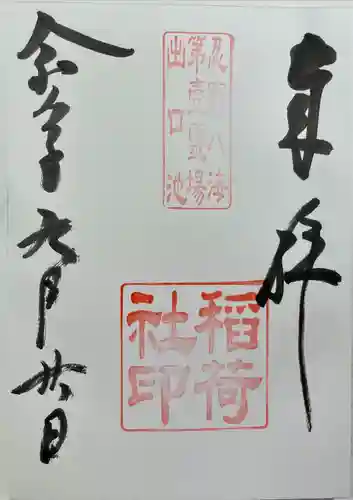 奉拝
忍野八海
第壱霊場
出口池
稲荷
社印
令和六年
九月廿日